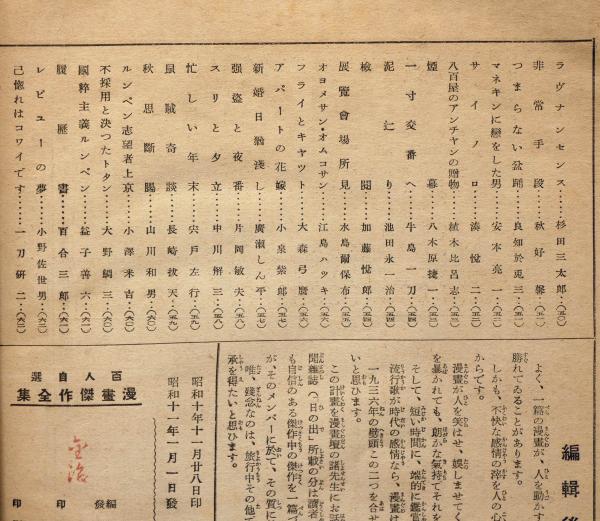 ラヴナンセンス……杉田三太郎…(五〇)
非常手段……秋好馨…(五一)
つまらない盆踊……良知於兎三…(五一)
マネキンに戀をした男……安本亮一…(五二)
サイノロ……湊悅二…(五二)
八百屋のアンチヤンの贈物……植木比呂志…(五三)
煙幕……八木原捷一…(五三)
一寸交番へ……牛島一刀…(五四)
泥辷り……池田永一治…(五四)
檢閱……加藤悅郎…(五五)
展覽會場所見……水島爾保布…(五五)
オヨメサン・オムコサン……江島ハツキ…(五六)
フライとキヤツト……大森弓麿…(五六)
アパートの花嫁……小泉紫郎…(五七)
新婚日猶淺し……廣瀨しん平…(五七)
强盜と夜番……片岡敏夫…(五八)
スリと夕立……中川解三…(五八)
忙しい年末……宍戶左行…(五九)
鼠賊奇談……長崎拔天…(五九)
秋思斷腸……山川和男…(六〇)
ルンペン志望者上京……小澤未吉…(六〇)
不採用と決つたトタン……大野鯛三…(六〇)
國粹主義ルンペン……益子善六…(六一)
履歷書……百合三郎…(六一)
レビユーの夢……小野佐世男…(六二)
己惚れはコワイです……一刀硏二…(六二)
編輯後
よく、一篇の漫畫が、人を動かす
勝れてゐることがあります。
しかも、不快な感情の滓を人の心
からです。
漫畫が人を笑はせ、娛しませてく
を暴かれても、朗かな氣持でそれを
そして、短い時間に、端的に鑑賞
流行歌が時代の感情なら、漫畫は
一九三六年の劈頭この二つを合せ
いと思ひます。
この計畫を漫畫壇の諸先生にお話
聞雜誌(「日の出」所載の分は讀者
も自信のある傑作中の傑作を一篇づ
が、そのメンバーに於て、その質に
唯、殘念なのは、旅行中その他で
承を得たいと思ひます。
百人自選
漫畫傑作全集
昭和十年十一月廿八日印
昭和十一年一月一日發
編
發
印
印